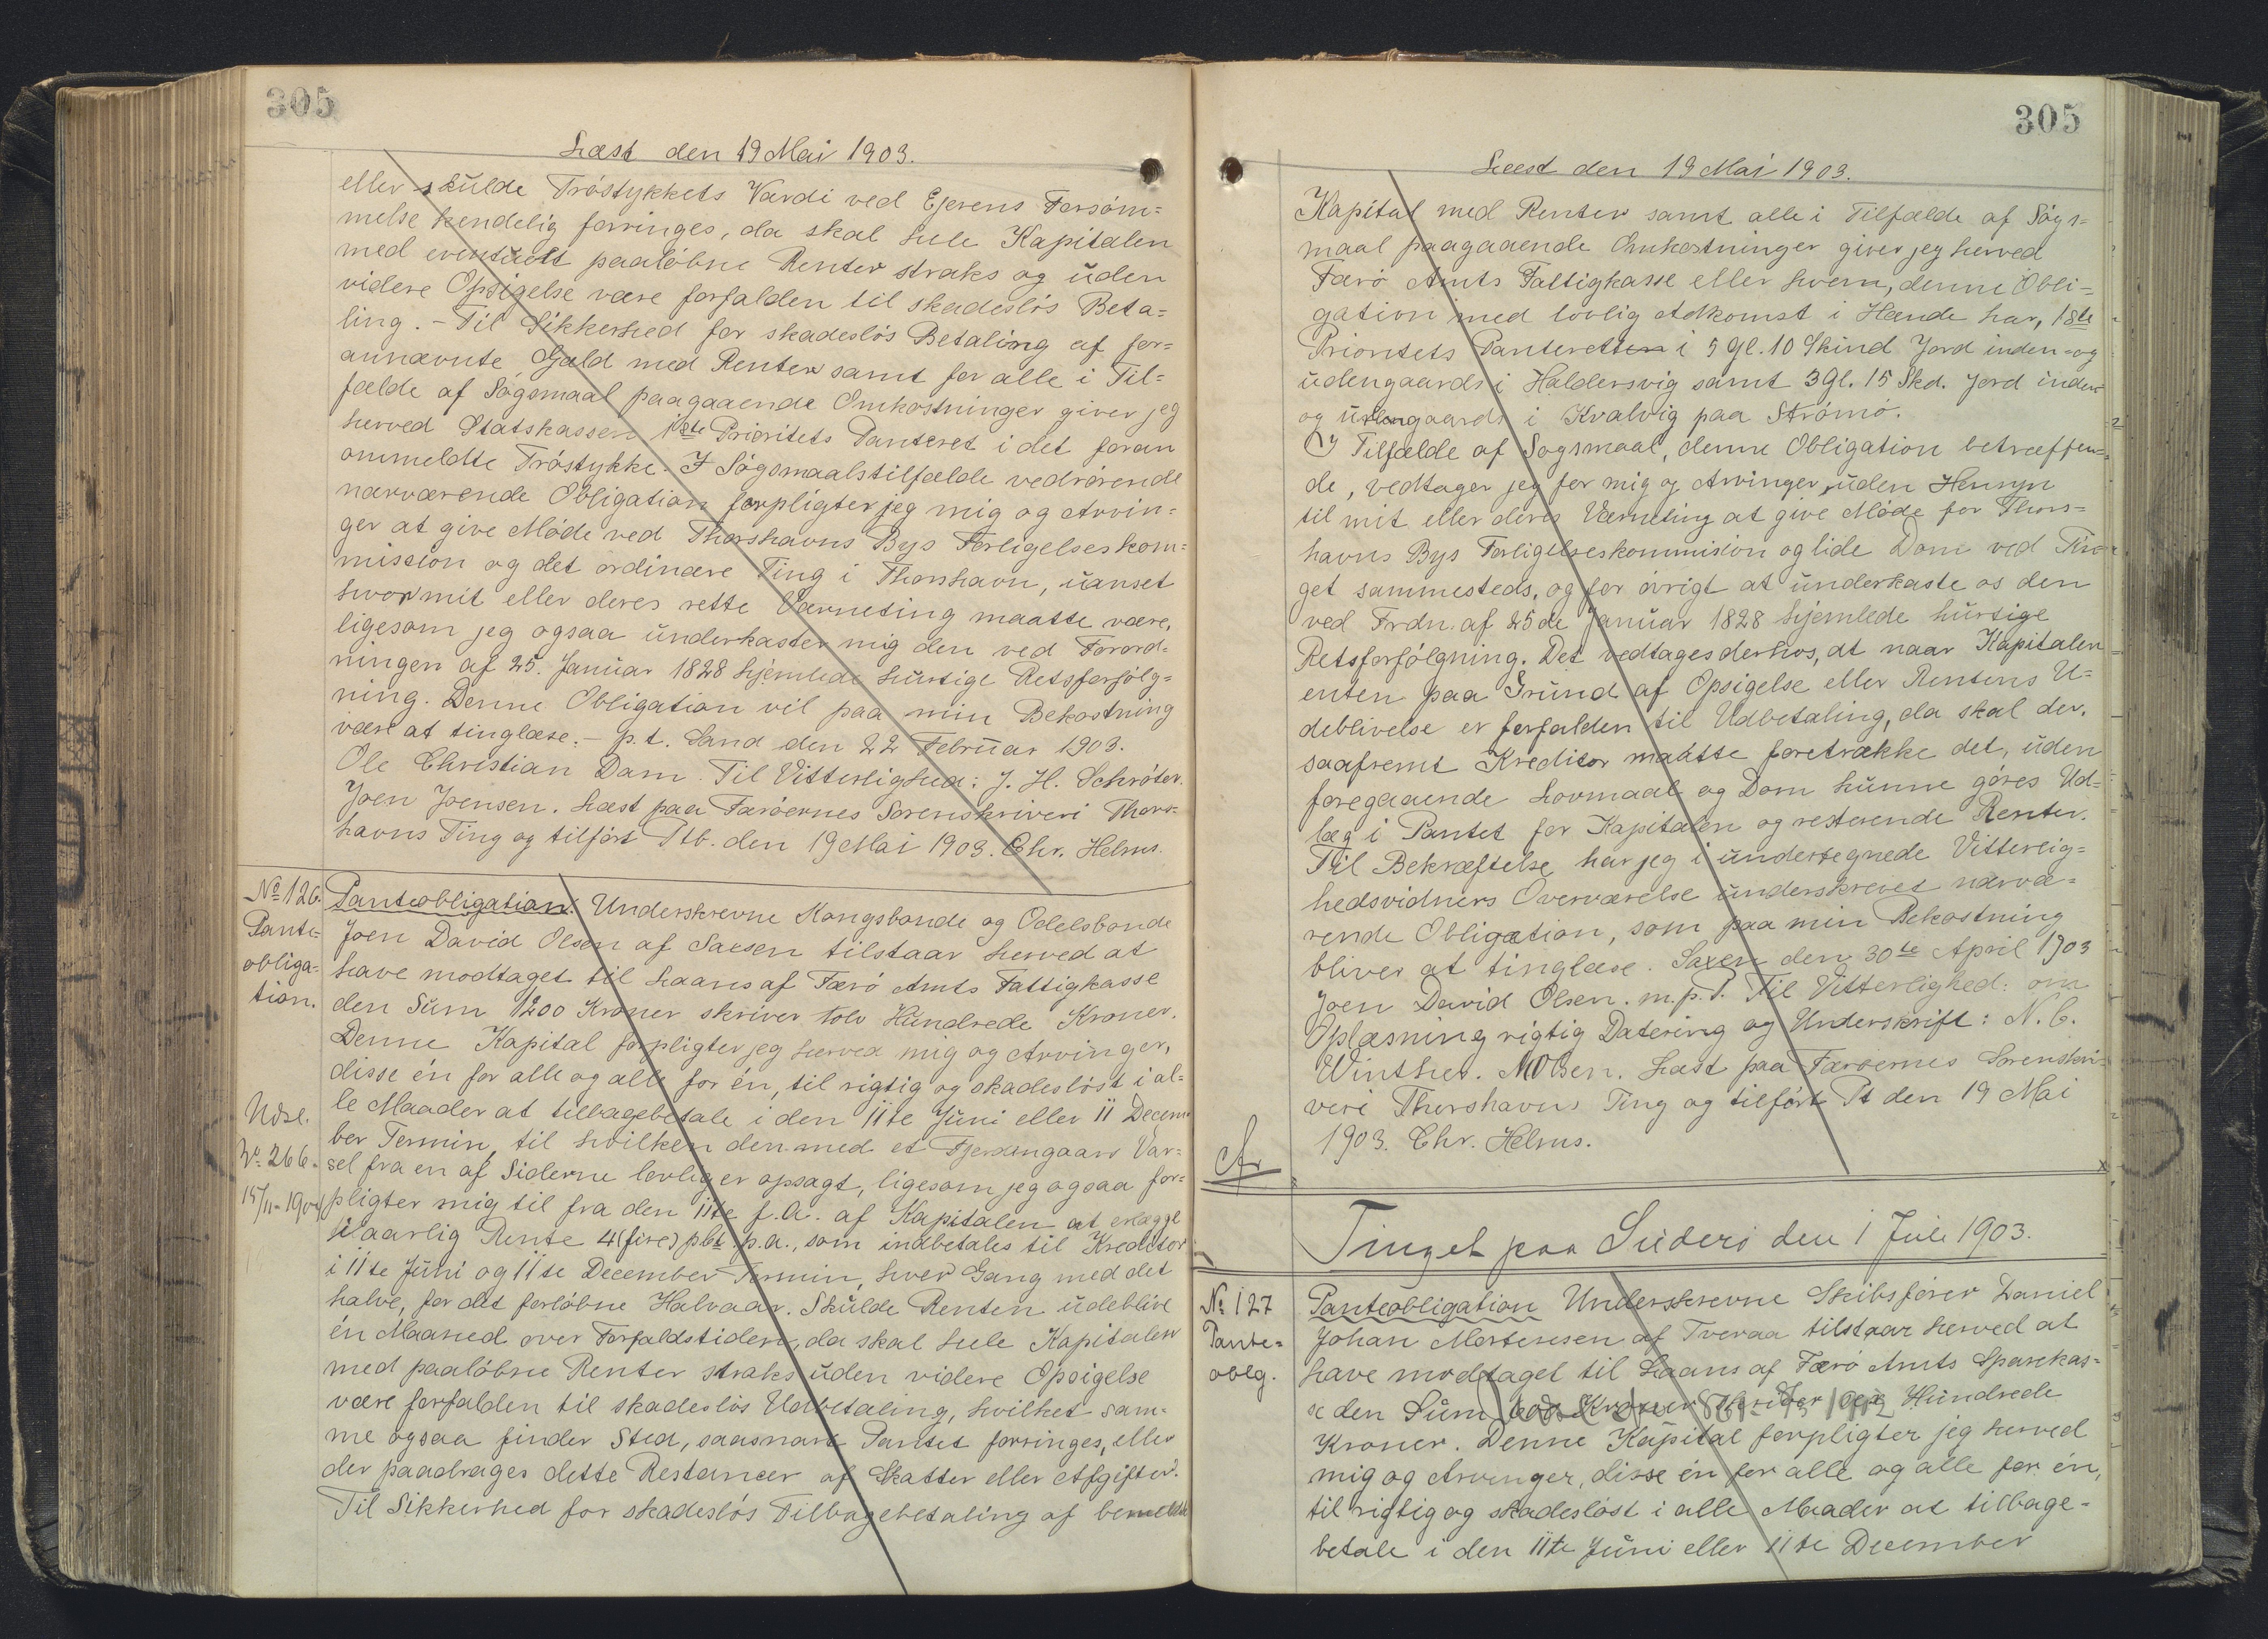 305
Læst den 19 Mai 1903.
eller skulde Tróstykkets Værdi ved Ejerens Forsóm=
melse kendelig forringes, da skal hele Kapitalen
med eventuelt paalóbne Renter straks og uden
videre Opsigelse være forfalden til skadeslós Beta=
ling. - Til Sikkerhed for skadeslós Betaling af for=
annævnte Gæld med Renter samt for alle i Til=
fælde af Sógsmaal paagaaende Omkostninger giver jeg
herved Statskassen 1ste Prioritets Panteret i det foran
ommeldte Tróstykke. I Sógsmaalstilfælde vedrórende
nærværende Obligation forpligter jeg mig og Arvin=
ger at give Móde ved Thorshavns Bys Forligelseskom=
mission og det ordinære Ting i Thorshavn, uanset
hvor mit eller deres rette Værneting maatte være,
ligesom jeg ogsaa underkaster mig den ved Forord=
ningen af 25. Januar 1828 hjemlede hurtige Retsforfólg=
ning. Denne Obligation vil paa min Bekostning
være at tinglæse. - p.t. Sand den 22 Februar 1903.
Ole Christian Dam. Til Vitterlighed: J. H. Schróter.
Joen Joensen. Læst paa Færóernes Sorenskriveri Thors=
havns Ting og tilfórt Ptb. den 19 Mai 1903. Chr. Helms.
No 126.
Pante=
obliga=
tion.
Panteobligation. Underskrevne Kongsbonde og Odelsbonde
Joen David Olsen af Saxen tilstaar herved at
have modtaget til Laans af Færó Amts Fattigkasse
den Sum 1200 Kroner skriver tolv Hundrede Kroner.
Denne Kapital forpligter jeg herved mig og Arvinger,
disse én for alle og alle for én, til rigtig og skadeslóst i al=
le Maader at tilbagebetale i den 11te Juni eller 11 Decem
ber Termin, til hvilken den med et Fjerdingaars Var=
sel fra en af Siderne lovlig er opsagt, ligesom jeg ogsaa for=
pligter mig til fra den 11te f.A. af Kapitalen at erlægge
aarlig Rente 4 (fire) pCt. p.a., som indbetales til Kreditor
i 11te Juni og 11te December Termin, hver Gang med det
halve, for det forlóbne Halvaar. Skulde Renten udeblive
én Maaned over Forfaldstiden, da skal hele Kapitalen
med paalóbne Renter straks uden videre Opsigelse
være forfalden til skadeslós Udbetaling, hvilket sam=
me ogsaa finder Sted, saasnart Pantet forringes, eller
der paadrages dette Restancer af Skatter eller Afgifter.
Til Sikkerhed for skadeslós Tilbagebetaling af bemeldte
Udsl.
No 266.
15/11-190
305
Læst den 19 Mai 1903.
Kapital med Renter samt alle i Tilfælde af Sógs=
maal paagaaende Omkostninger giver jeg herved
Færó Amts Fattigkasse eller hvem, denne Obli=
gation med lovlig Adkomst i Hænde har, 1ste
Prioritets Panteretten i 5 Gl. 10 Skind Jord inden- og
udengaards i Haldersvig samt 3 Gl. 15 Skd. Jord inden
og udengaards i Kvalvig paa Strómó.
I Tilfælde af Sogsmaal, denne Obligation betræffen=
de, vedtager jeg for mig og Arvinger, uden Hensyn
til mit eller deres Værneting at give Móde for Thors=
havns Bys Forligelseskommision og lide Dom ved Tin=
get sammesteds, og for óvrigt at underkaste os den
ved Frdn. af 25de Januar 1828 hjemlede hurtige
Retsforfólgning. Det vedtages derhos, at naar Kapitalen
enten paa Grund af Opsigelse eller Rentens U=
deblivelse er forfalden til Udbetaling, da skal der,
saafremt Kreditor maatte foretrække det, uden
foregaaende Lovmaal og Dom kunne góres Ud=
læg i Pantet for Kapitalen og resterende Renter.
Til Bekræftelse har jeg i undertegnede Vitterlig=
hedsvidners Overværelse underskrevet nærvæ=
rende Obligation, som paa min Bekostning
bliver at tinglæse. Saxen den 30te April 1903
Joen David Olsen. m.p.P. Til Vitterlighed: om
Oplæsning rigtig Datering og Underskrift: N. C.
Winther. M Olsen. Læst paa Færóernes Sorenskri
veri Thorshavns Ting og tilfórt Pt den 19 Mai
1903. Chr. Helms.
Tinget paa Suderó den 1 Juli 1903.
No 127
Pante=
oblg.
Panteobligation Underskrevne Skibsfórer Daniel
Johan Mortensen af Tveraa tilstaar herved at
have modtaget til Laans af Færó Amts Sparekas=
se den Sum Kroner skriver Hundrede
Kroner. Denne Kapital forpligter jeg herved
mig og Arvinger, disse én for alle og alle for én,
til rigtig og skadeslóst i alle Maader at tilbage-
betale i den 11te Juni eller 11te December